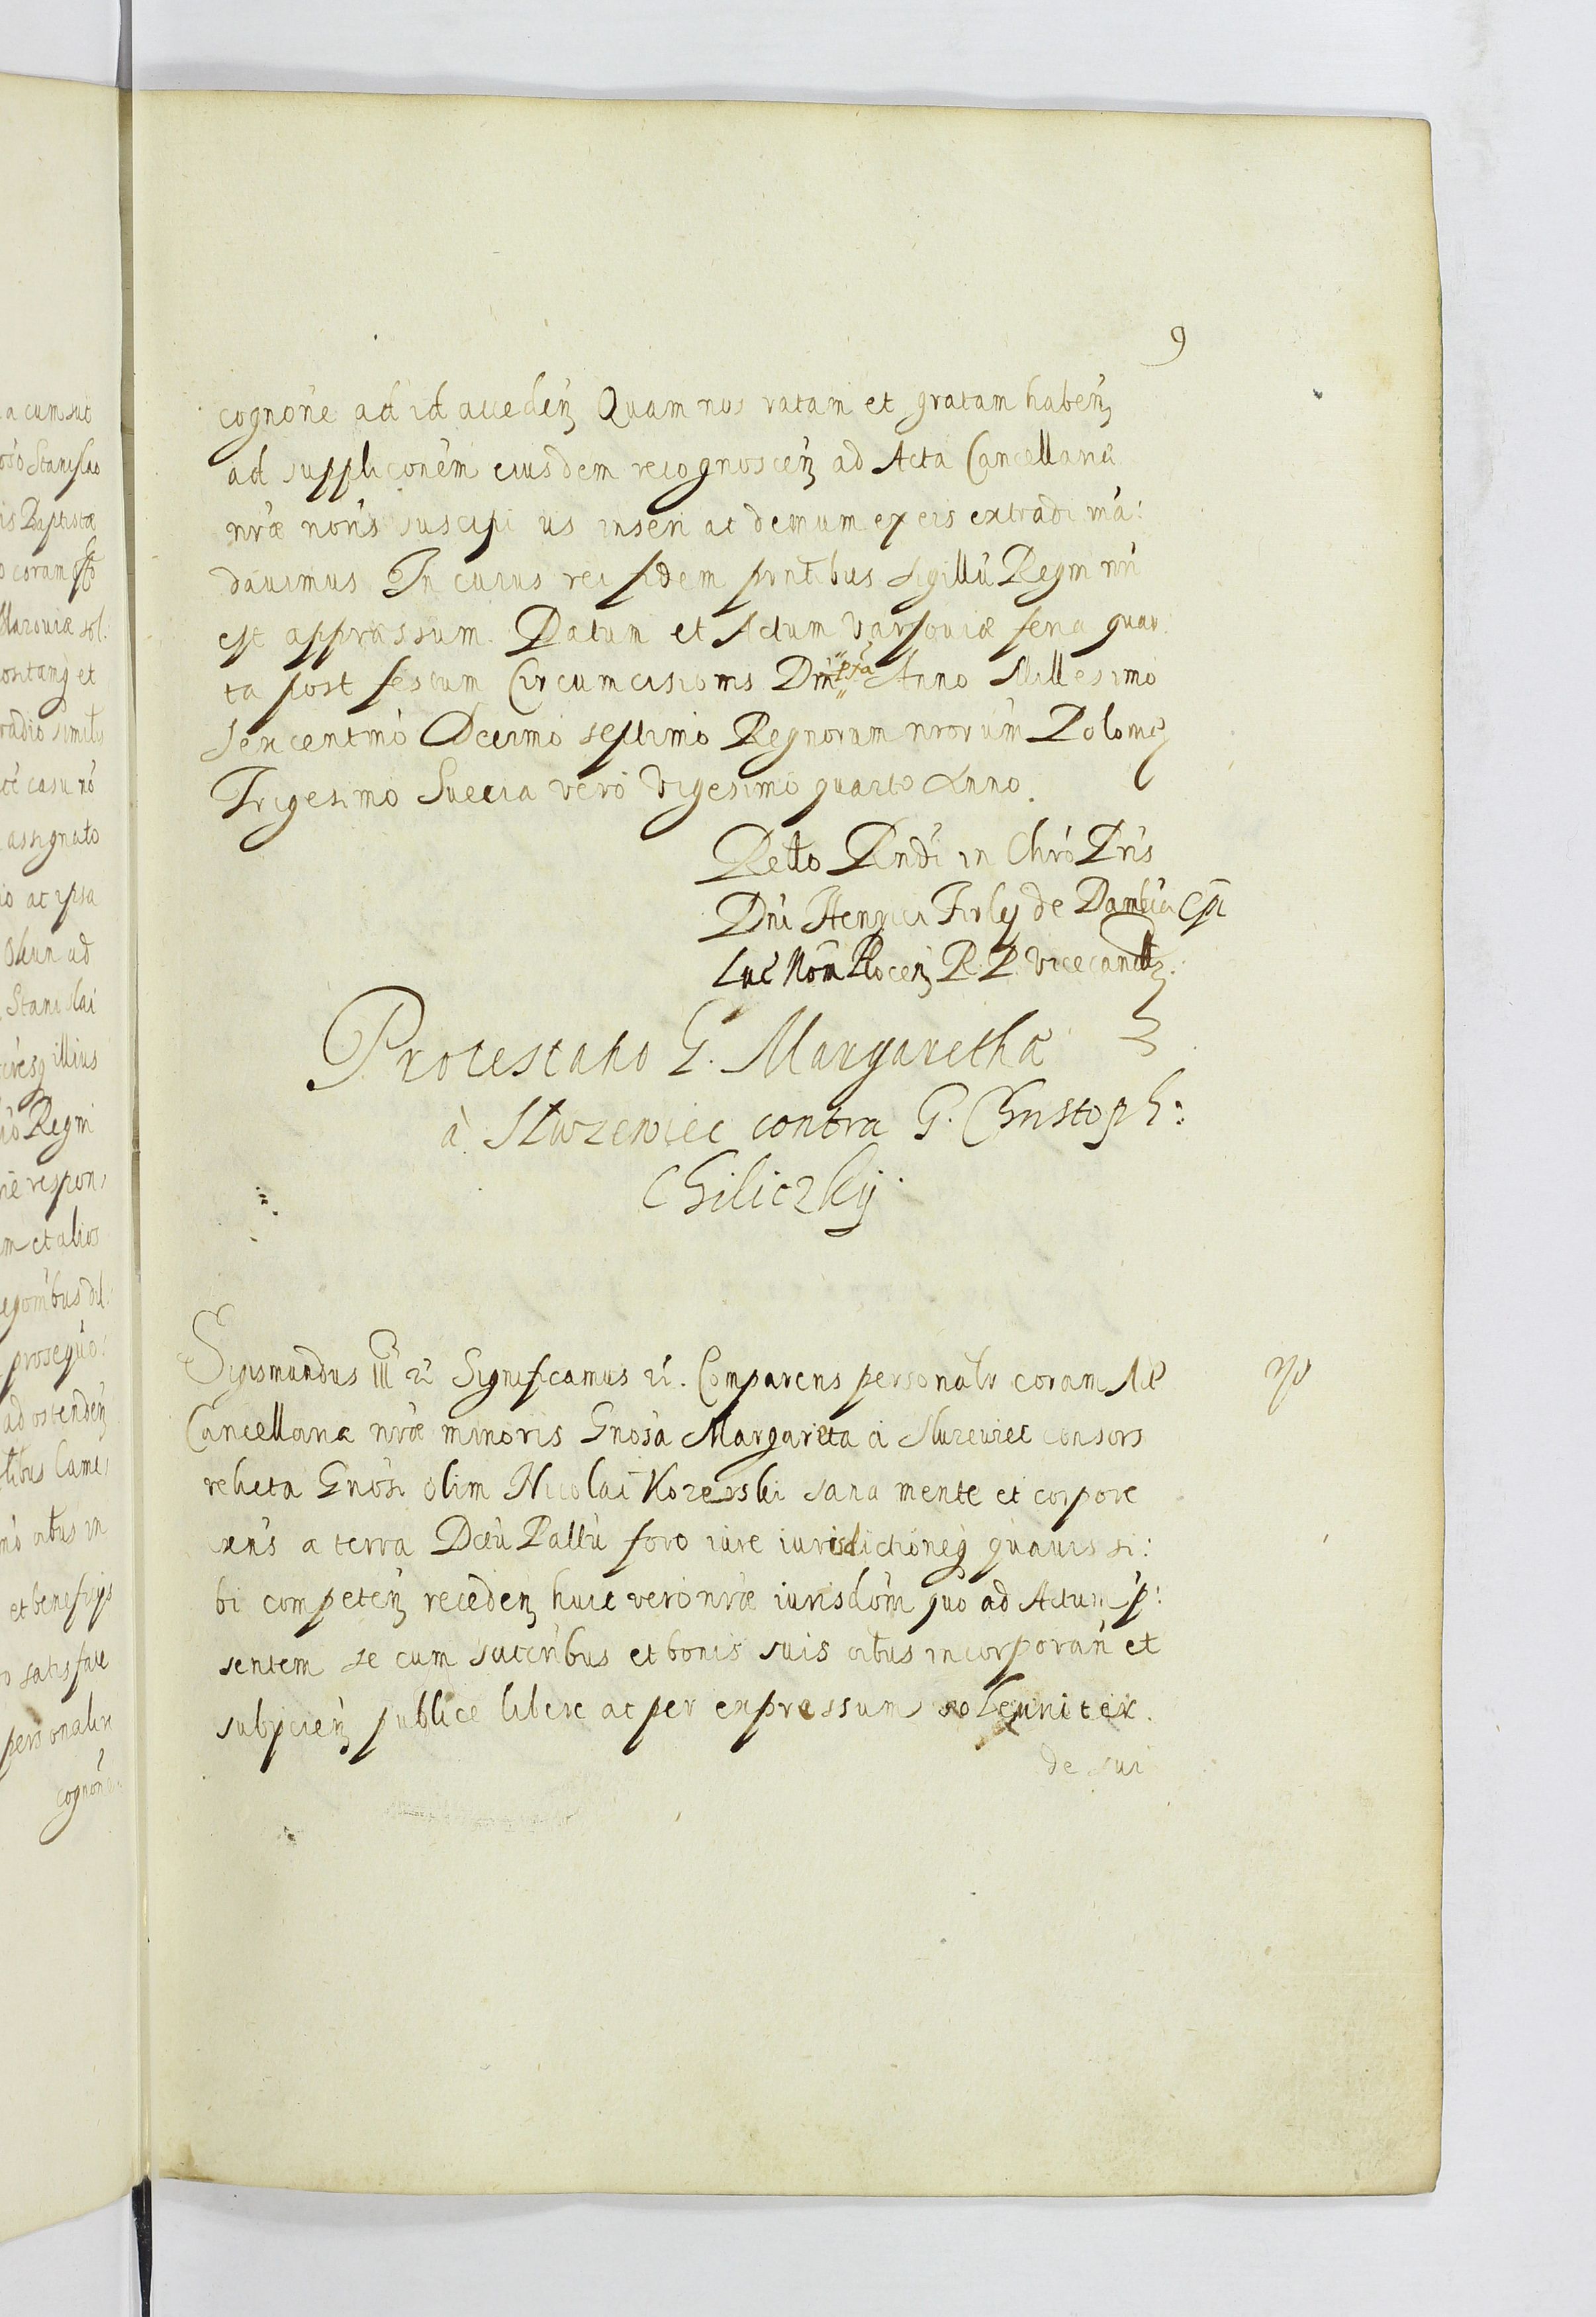 9
cognone ad id acceden Quam nos ratam et gratam haben
ad suppliconem eiusdem recognoscen ad Acta Cancellariæ
nræ noris suscipi iis inseri ac demum ex eis extradi ma:
davimus In cuius rei fidem pntibus sigillu Regni nri
est appræssum. Datum et Actum Varsoviæ feria quar
ta post festum Circumcisionis Dni pxa Anno Millesimo
Sexcentmo Decimo septimo Regnorum nrorum Poloniæ
Trigesimo Sueciæ vero Vigesimo quarto Anno.
Retto Rndi in Chro Pris
Dni Henrici Firley de Dambrovica Epi
Luc Nom Plocen R. P. Vicecancell
Protestatio G. Margarethæ
à Sluzewiec contra G. Christoph:
Chiliczky.
Sigismundus III rc Significamus rc. Comparens personalr coram Actis
Cancellariæ nræ minoris Gnosa Margareta a Sluzewiec consors
relicta Gnosi olim Nicolai Kozerski sana mente et corpore
exns a terra Dctu Pallu foro iure iurisdictioneq quavis si:
bi competen receden huic vero nræ iurisdom quo ad Actum p:
sentem se cum succribus et bonis suis oibus incorporan et
subycien publice libere ac per expressum solenniter.
de sui
a cum suc
oso Stanislao
is Baptistæ
o coram
Mazoviæ
et
radio
casu no
assignato
io ac ipsa
Olim ad
Stanislai
illius
Regni
respon
m et alios
prosequo:
ad ostenden
oibus in
et beneficijs
satisface
personaliter
cognon